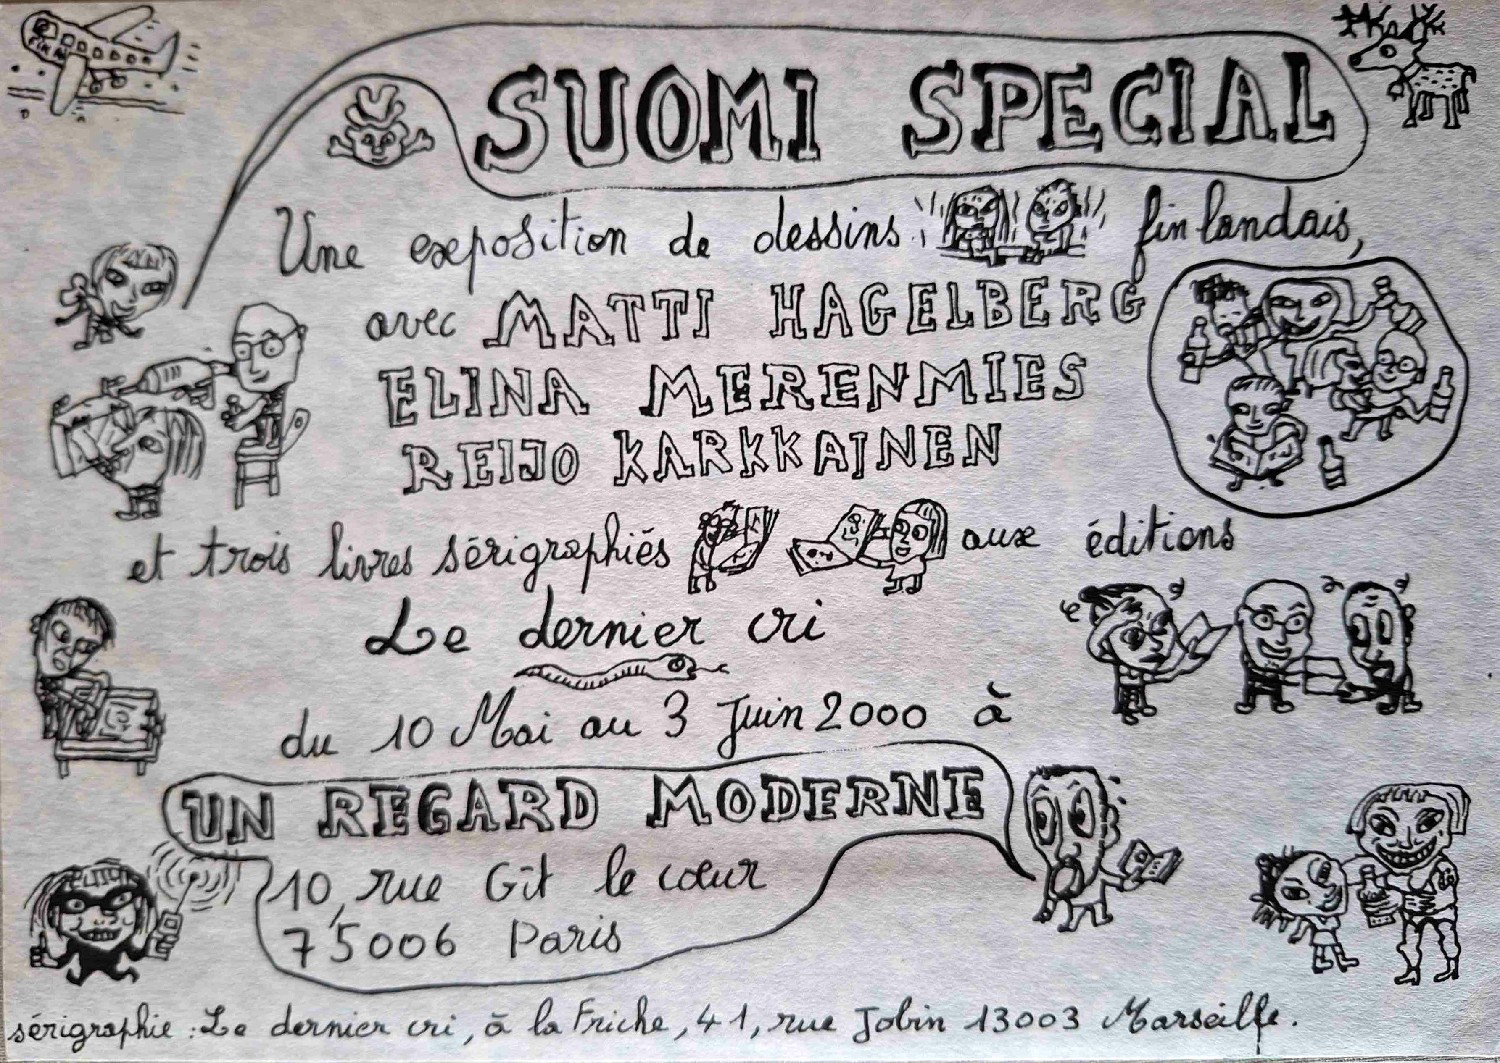 SUOMI SPECIAL
Une exposition de dessins finlandais,
avec MATTI HAGELBERG
ELINA MERENMIES
REIJO KARKKAINEN
et trois livres sérigraphiés aux éditions
Le dernier cri
du 10 Mai au 3 Juin 2000 à
UN REGARD MODERNE
10, rue Gît le cœur
75006 Paris
sérigraphie : Le dernier cri, à la Friche, 41, rue Jobin 13003 Marseille.